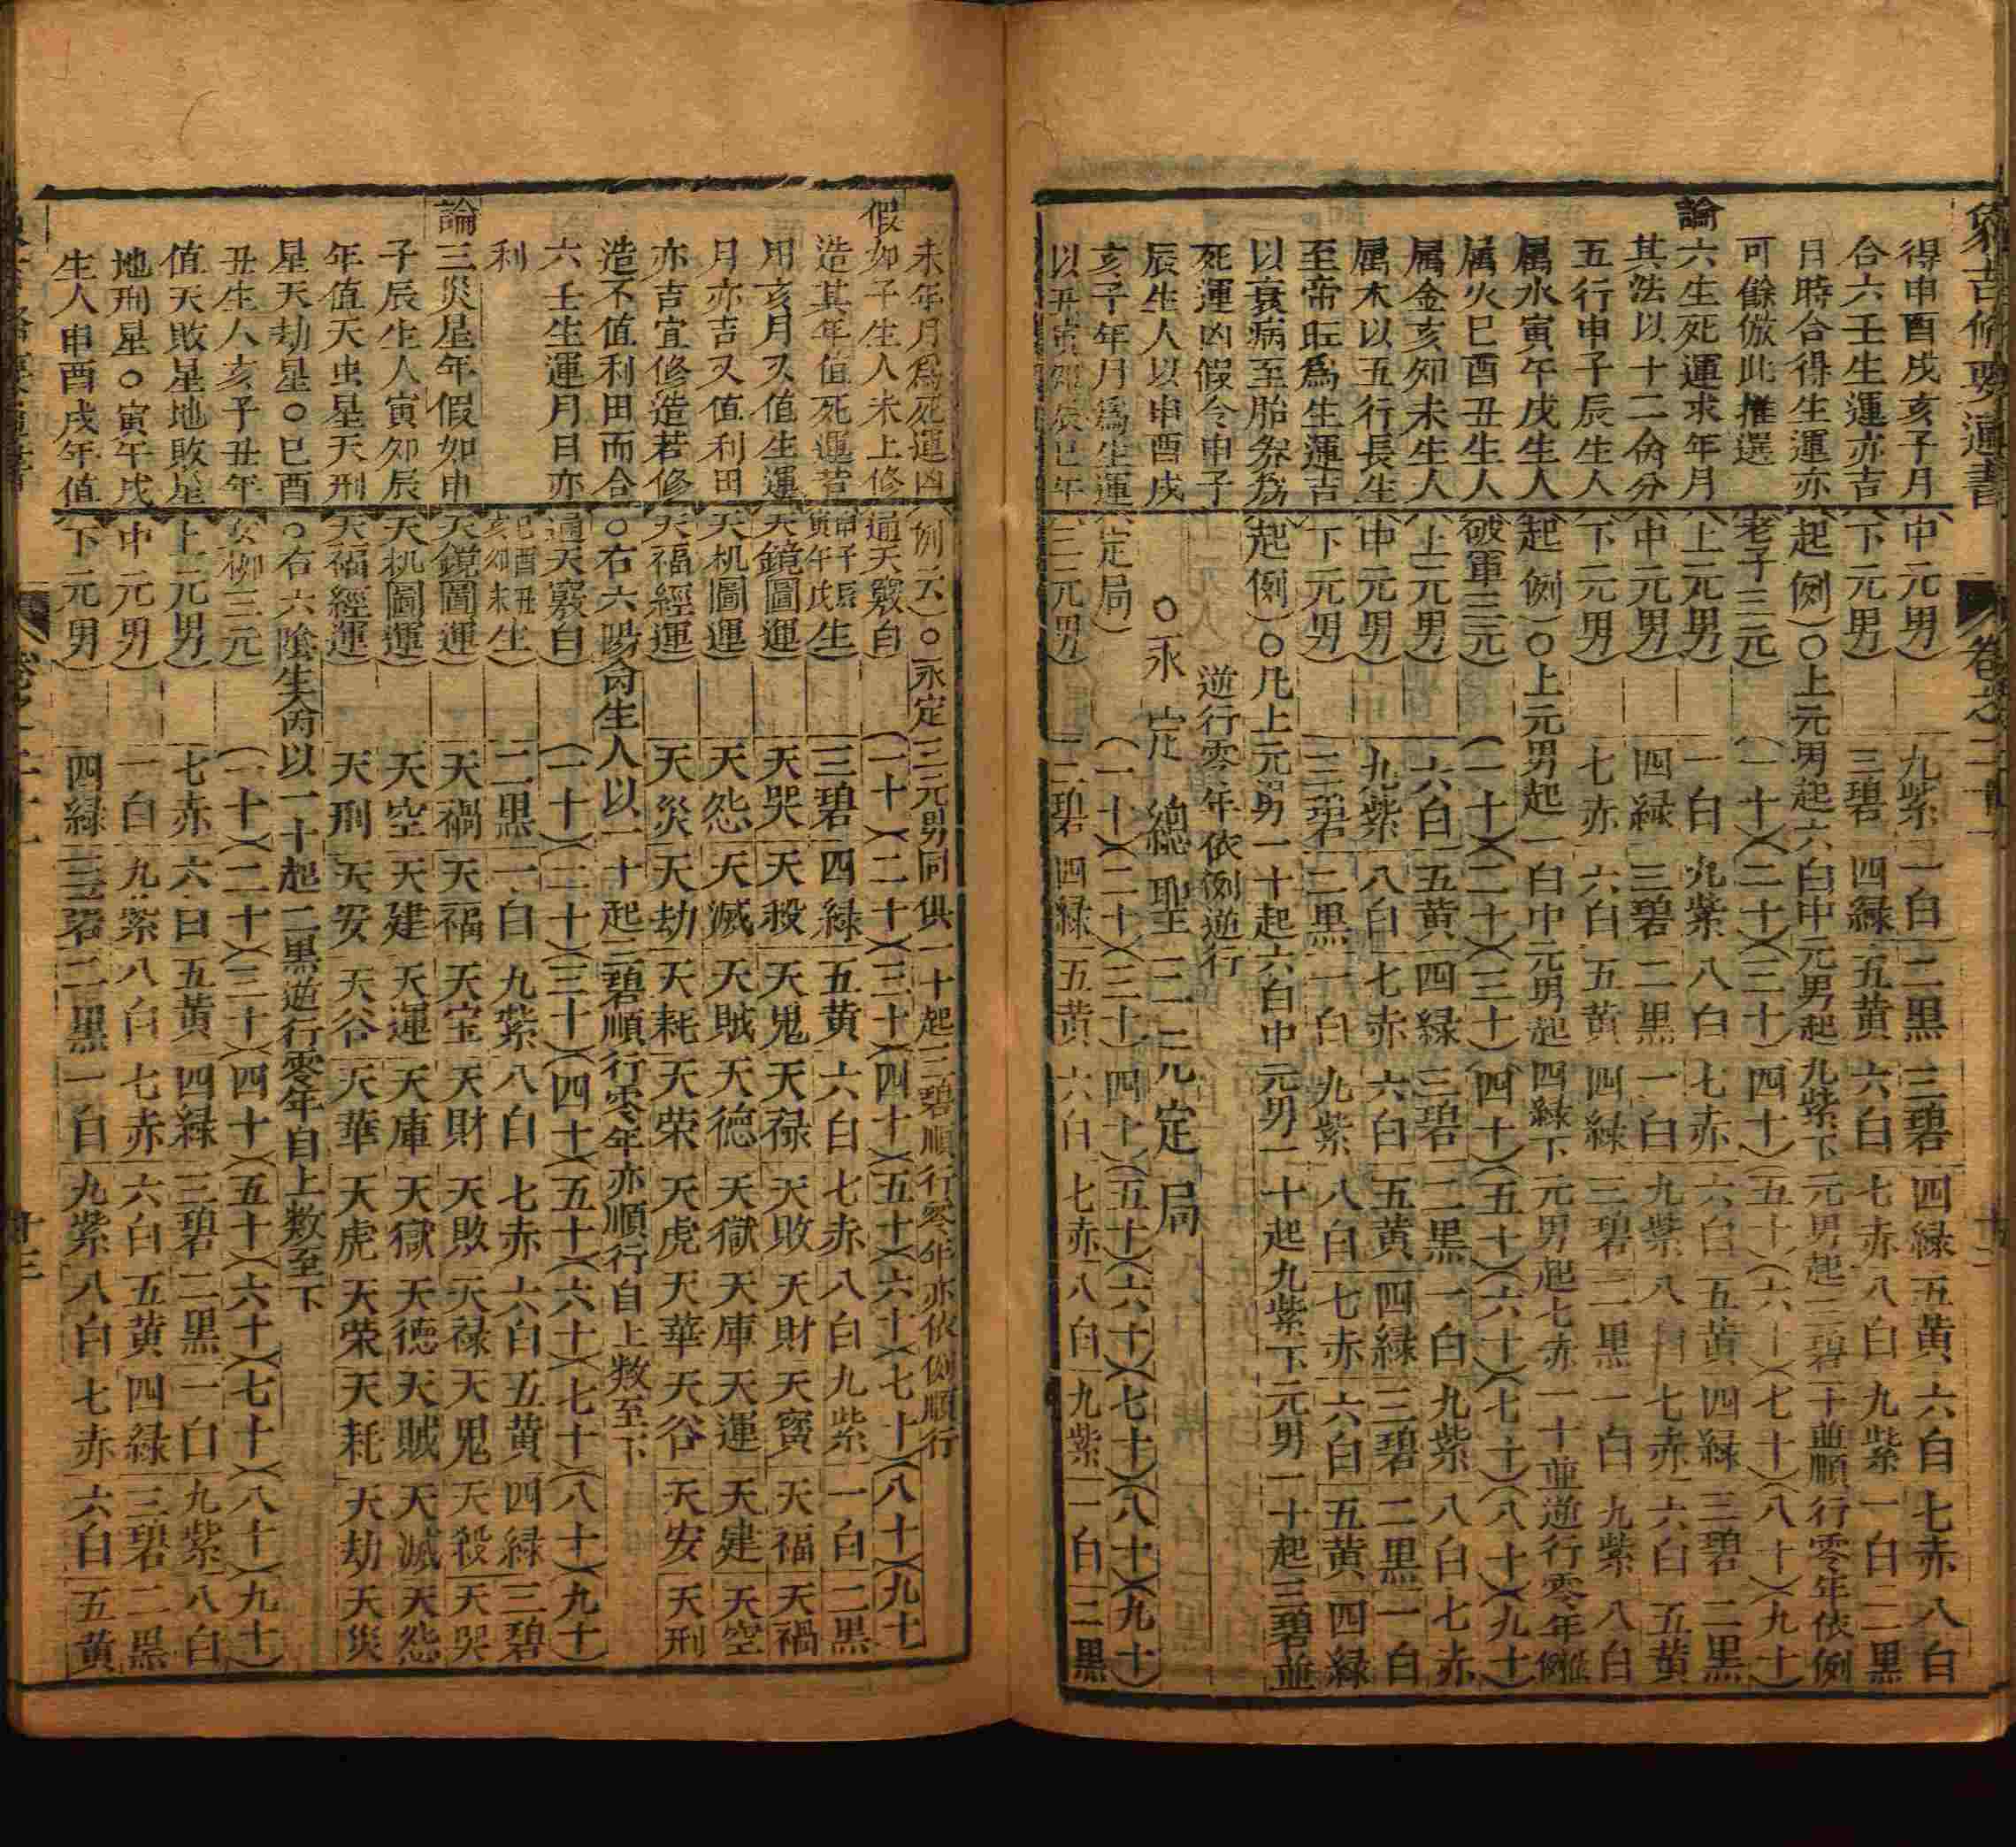 象吉脩要通書
卷之二十二
得申酉戌亥子月
合六壬生運亦吉
日時合得生運亦
可餘倣此推選
論六生死運求年月
其法以十二命分
五行申子辰生人
属水寅午戌生人
属火巳酉丑生人
属金亥卯未生人
属木以五行長生
至帝旺爲生運吉
以衰病至胎養爲
死運凶假令申子
辰生人以申酉戌
亥子年月爲生運
以丑寅卯辰巳午
(中元男) 九紫 一白 二黑 三碧 四緑 五黄 六白 七赤 八白
(下元男) 三碧 四緑 五黄 六白 七赤 八白 九紫 一白 二黑
(起例)○上元男起六白中元男起九紫下元男起三碧一十並順行零年依例
(老子三元) (一十)(二十)(三十)(四十)(五十)(六十)(七十)(八十)(九十)
(上元男) 一白 九紫 八白 七赤 六白 五黄 四緑 三碧 二黑
(中元男) 四緑 三碧 二黒 一白 九紫 八白 七赤 六白 五黄
(下元男) 七赤 六白 五黄 四緑 三碧 二黑 一白 九紫 八白
(起例)○上元男起一白中元男起四緑下元男起七赤一十並逆行零年例推
(破軍三元) (一十)(二十)(三十)(四十)(五十)(六十)(七十)(八十)(九十)
(上元男) 六白 五黄 四緑 三碧 二黑 一白 九紫 八白 七赤
(中元男) 九紫 八白 七赤 六白 五黄 四緑 三碧 二黑 一白
(下元男) 三碧 二黑 一白 九紫 八白 七赤 六白 五黄 四緑
(起例)○凡上元男一十起六白中元男一十起九紫下元男一十起三碧並
逆行零年依例逆行
○永定總聖三元定局
(定局) (一十)(二十)(三十)(四十)(五十)(六十)(七十)(八十)(九十)
(三元男) 三碧 四緑 五黄 六白 七赤 八白 九紫 一白 二黑
未年月爲死運凶
假如子生人未上修
造其年值死運若
用亥月又值生運
月亦吉又值利田
亦吉宜修造若修
造不值利田而合
六壬生運月日亦
利
論三災星年假如申
子辰生人寅卯辰
年值天虫星天刑
星天劫星○巳酉
丑生人亥子丑年
值天敗星地敗星
地刑星○寅午戌
生人申酉戌年值
(例云)○永定三元男同俱一十起三碧順行零年亦依例順行
(通天竅白) (一十)(二十)(三十)(四十)(五十)(六十)(七十)(八十)(九十)
(申子辰寅午戌生) 三碧 四緑 五黄 六白 七赤 八白 九紫 一白 二黒
(天鏡圖運) 天哭 天殺 天鬼 天禄 天敗 天財 天寳 天福 天禍
(天机圖運) 天怨 天滅 天賊 天德 天獄 天庫 天運 天建 天空
(天福經運) 天災 天劫 天耗 天荣 天虎 天華 天谷 天安 天刑
○右六陽命生人以一十起三碧順行零年亦順行自上数至下
(通天竅白) (一十)(二十)(三十)(四十)(五十)(六十)(七十)(八十)(九十)
(巳酉丑亥卯未生) 二黒 一白 九紫 八白 七赤 六白 五黄 四緑 三碧
(天鏡圖運) 天禍 天福 天宝 天財 天敗 天禄 天鬼 天殺 天哭
(天机圖運) 天空 天建 天運 天庫 天獄 天德 天賊 天滅 天怨
(天福經運) 天刑 天安 天谷 天華 天虎 天荣 天耗 天劫 天災
○右六陰生人命以一十起二黒逆行零年自上数至下
三元) (一十)(二十)(三十)(四十)(五十)(六十)(七十)(八十)(九十)
(上元男) 七赤 六白 五黄 四緑 三碧 二黒 一白 九紫 八白
(中元男) 一白 九紫 八白 七赤 六白 五黄 四緑 三碧 二黒
(下元男) 四緑 三碧 二黒 一白 九紫 八白 七赤 六白 五黄